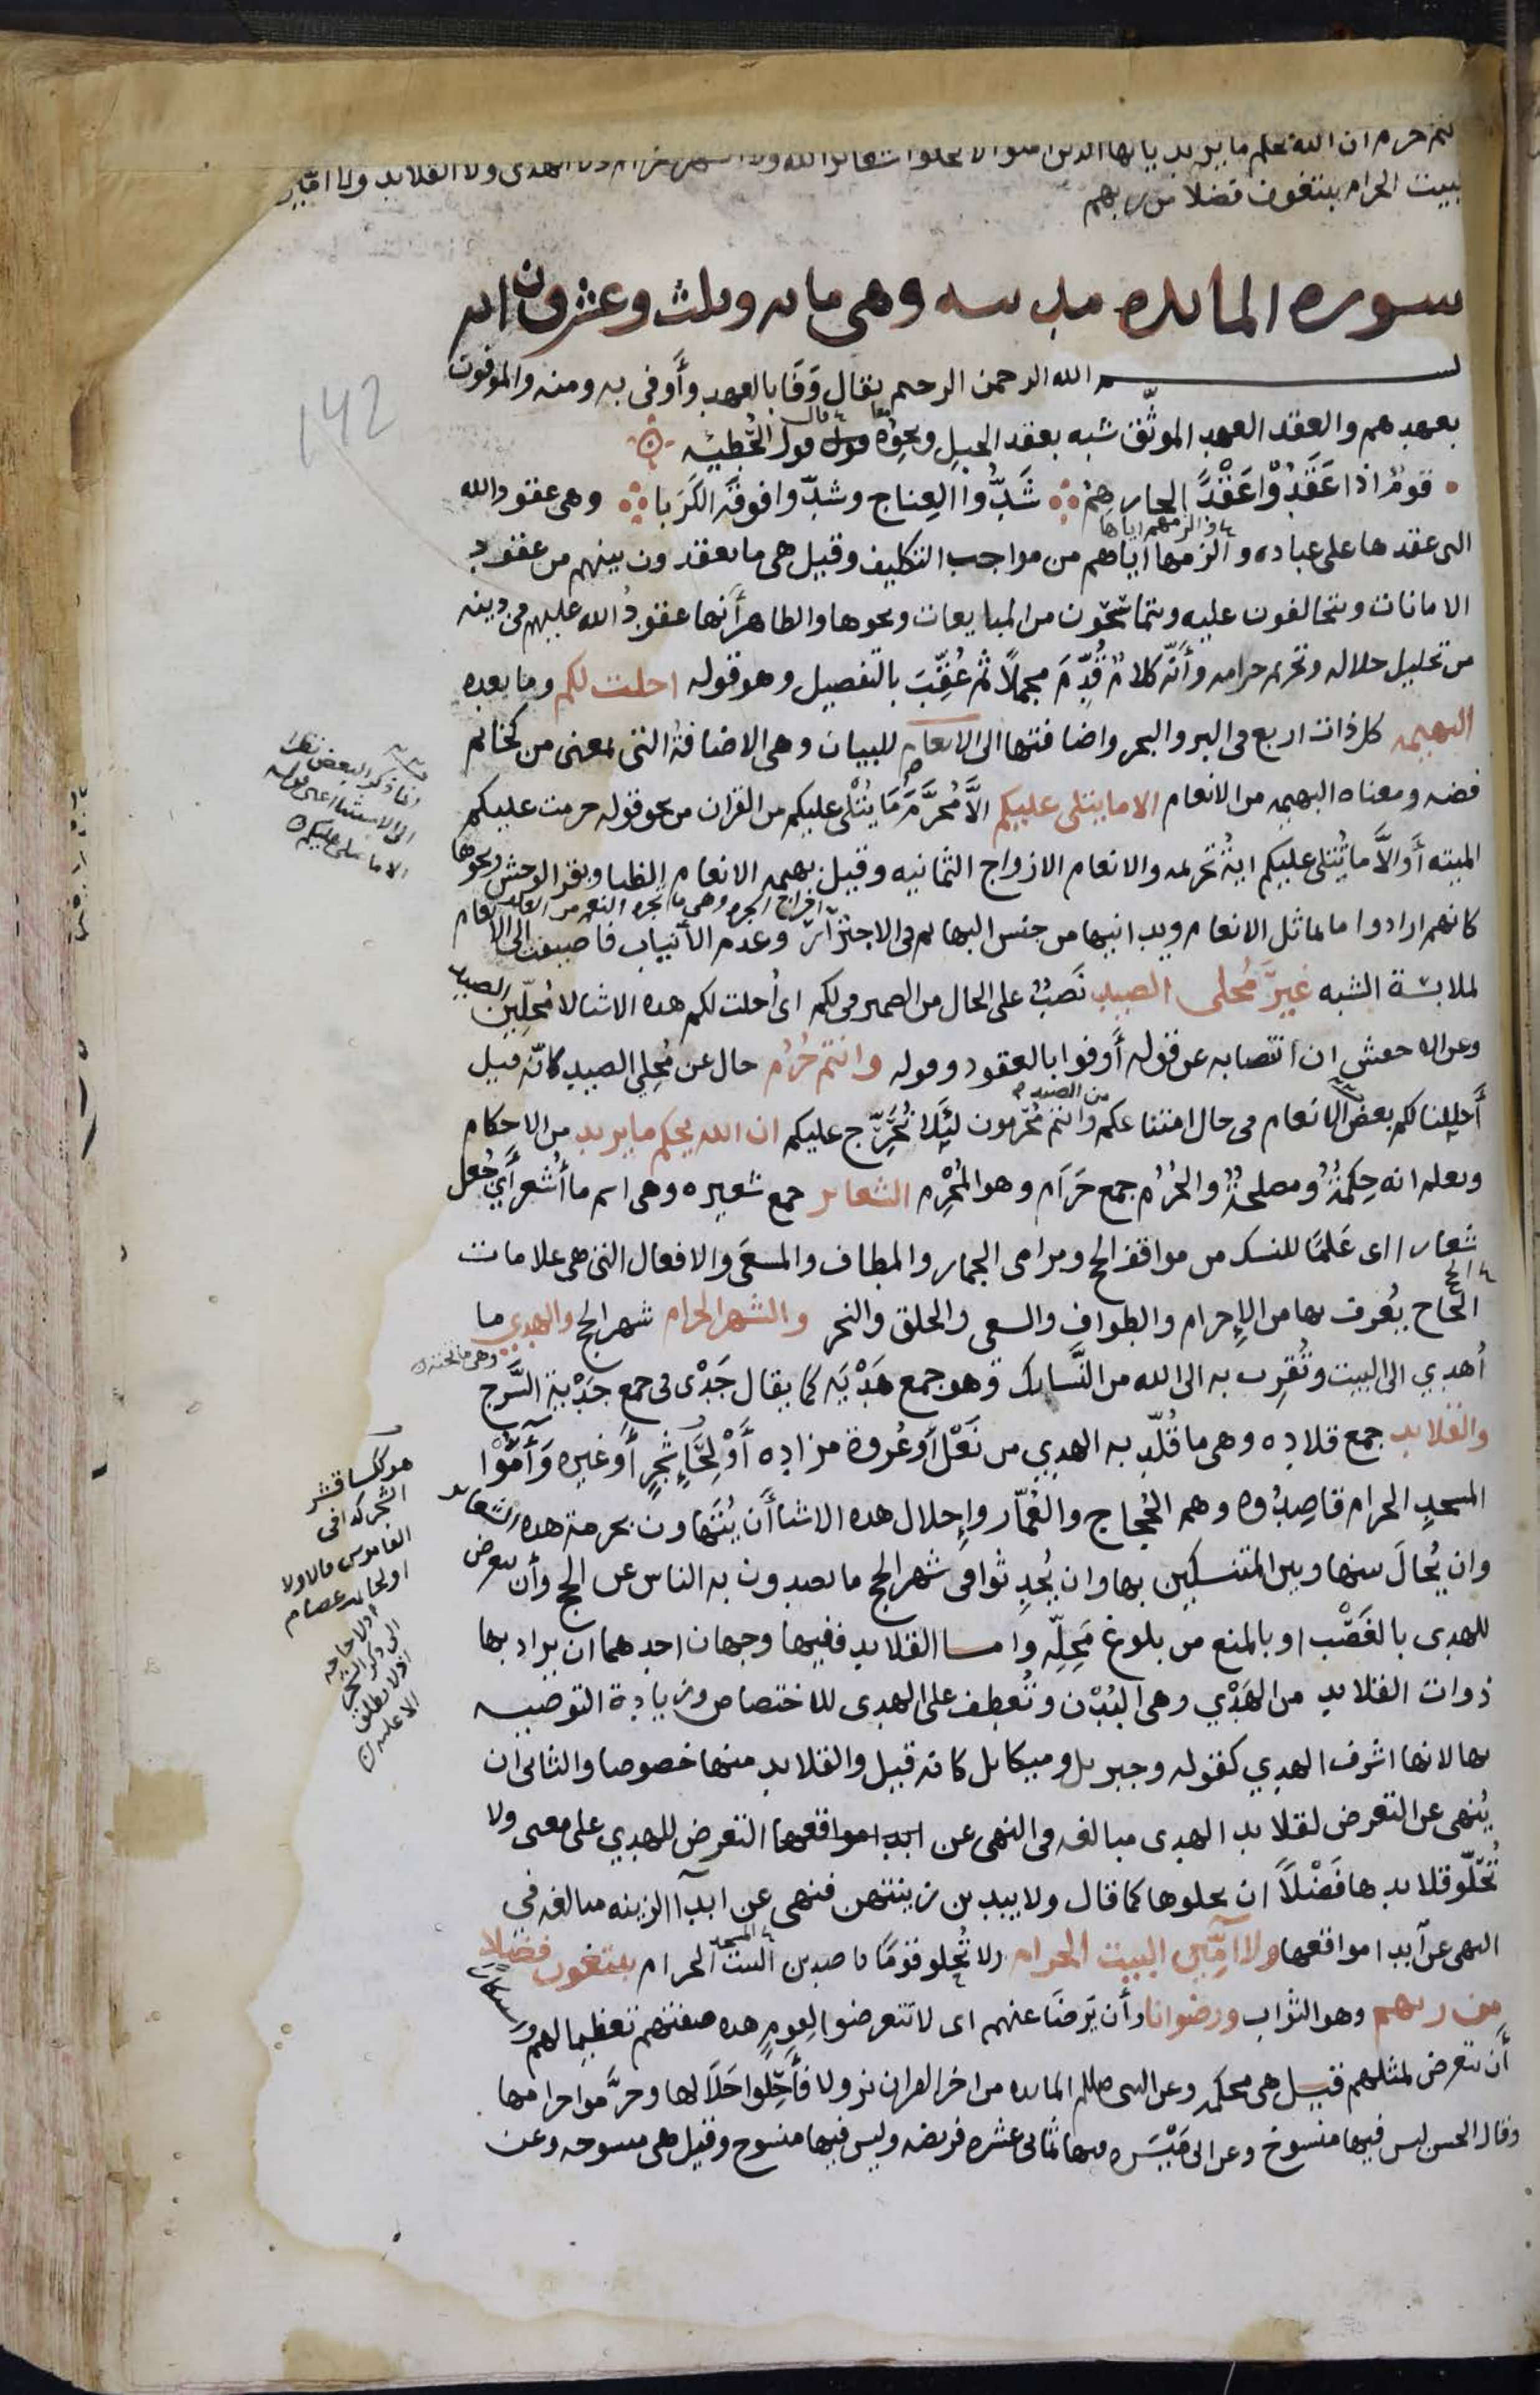 نتم حرم ان الله يحكم ما يريد يايها الذين امنوا لا تحلوا شعائر الله ولا الشهر الحرام ولا الهدى ولا القلايد ولا امين
لبيت الحرام يبتغون فضلا من ربهم
سوره المائده مدنيه وهى مايه وثلث وعشرون ايه
بسم الله الرحمن الرحيم يقال وَفَا بالعهد وأَوفى به ومنه والموفون
بعهدهم والعقد العهد الموثّق شبه بعقد الحبل ونحوه قول الحُطيئه
قومٌ اذا عَقَدُوْا عَقْدًا لجارهِمْ شَدُّوا العِناج وشدّوا فوقَه الكَرَبا وهى عقود الله
التى عقدها على عباده والزمها اياهم من مواجب التكليف وقيل هى ما يعقدون بينهم من عقود
والزمهم اياها
الامانات ويتحالفون عليه ويتماسّحون من المبايعات ونحوها والظاهر أنها عقودُ الله عليهم فى دينه
من تحليل حلاله وتحريم حرامه وأنّه كلامٌ قُدِّمَ مجملًا ثم عُقِّبَ بالتفصيل وهو قوله احلت لكم وما بعده
البهيمه كل ذات اربع فى البر والبحر واضافتها الى الانعام للبيان وهى الاضافة التى بمعنى من كخاتم
فضه ومعناه البهيمه من الانعام الا ما يتلى عليكم الّا مُحرَّمَ مَا يُتْلى عليكم من القران من نحو قوله حرمت عليكم
الميته أو الَّا ما يُتلى عليكم ايةُ تحريمه والانعام الازواج الثمانيه وقيل بهيمه الانعام الظبا وبقر الوحش ونحوها
كانهم ارادوا ما يماثل الانعام ويدانيها من جنس البهائم فى الاجترار وعدم الأنياب فاضيفت الى الانعام
لملابسة الشبه غيرَ مُحلى الصيد نَصبٌ على الحال من الضمير فى لكم اى أُحلت لكم هذه الاشيا لا مُحِلّين الصيد
وعن الاخفش ان انتصابه عن قوله أَوفوا بالعقود وقوله وانتم حُرُم حال عن مُحِلي الصيد كانّه قيل
أَحللنا لكم بعض الانعام فى حال امتناعكم وانتم مُحرِمون لئلا نُحَرِّج عليكم ان الله يحكم ما يريد من الاحكام
من الصيد
ويعلم انه حِكمةٌ ومصلحةٌ والحُرُم جمع حَرَام وهو المُحْرِم الشعاير جمع شعيره وهى اسم ما أُشعر أَي جُعل
شعارا اى عَلَمًا للنسك من مواقف الحج ومرامى الجمار والمطاف والمسعَى والافعال التى هى علامات
الحج
الحاج يُعرف بها من الإِحرام والطوافِ والسعى والحلق والنحر والشهر الحرام شهر الحج والهدي ما
أُهدي الى البيت وتُقرِب به الى الله من النَّسايك وهو جمع هَدْيَه كما يقال جَدْى فى جمع جَدْية السَّرج
والقلايد جمع قلاده وهى ما قُلّد به الهدي من نَعْل أَو عُروة مزاده أَوْ لِحَاءِ شجرٍ أَو غيره وَآمُّوْا
المسجد الحرام قاصِدُوه وهم الحُجاج والعُمّار وإِحلال هذه الاشيا أَن يُتهاون بحرمة هذه الشعاير
وان يُحالَ بينها وبين المتنسكين بها وان يُحدِثوا فى شهر الحج ما يصدون به الناس عن الحج وأن يتعرض
للهدى بالغَصْب او بالمنع من بلوغ مَحِلّه وامـا القلايد ففيها وجهان احدهما ان يراد بها
ذوات القلايد من الهَدْي وهى البُدْن وتُعطف على الهدى للاختصاص وزيادة التوصيه
بها لانها اشرف الهدي كقوله وجبريل وميكايل كانه قيل والقلايد منها خصوصا والثانى ان
يُنهى عن التعرض لقلايد الهدى مبالغه فى النهى عن التعرض للهدي على معنى ولا
تُحَلّو قلايدها فَضْلًا ان تحلوها كما قال ولا يبدين زينتهن فنهى عن ابدآ الزينه مبالغه فى
النهى عن آبدا مواقعها ولا امّين البيت الحرام ولا تُحِلو قومًا قاصدين البيت الحرام يبتغون فضلا
المسجد
من ربهم وهو الثواب ورضوانا وأن يَرضَا عنهم اى لا تتعرضوا لقومٍ هذه صفتهم تعظيما لهم
أن يتعرض لمثلهم قيـل هى محكمه وعن النبى صللم المايده من اخر القران نزولا فأَحِلّوا حَلَالها وحرَّموا حرامها
وقال الحسن ليس فيها منسوخ وعن ابى مَيْسَره فيها ثمانى عشره فريضه وليس فيها منسوخ وقيل هى منسوخه وعن
انما ذكر البعض نظرا
الى الاستثنا اعنى قوله
الا ما يتلى عليكم
الشجر كذا فى
القاموس
142